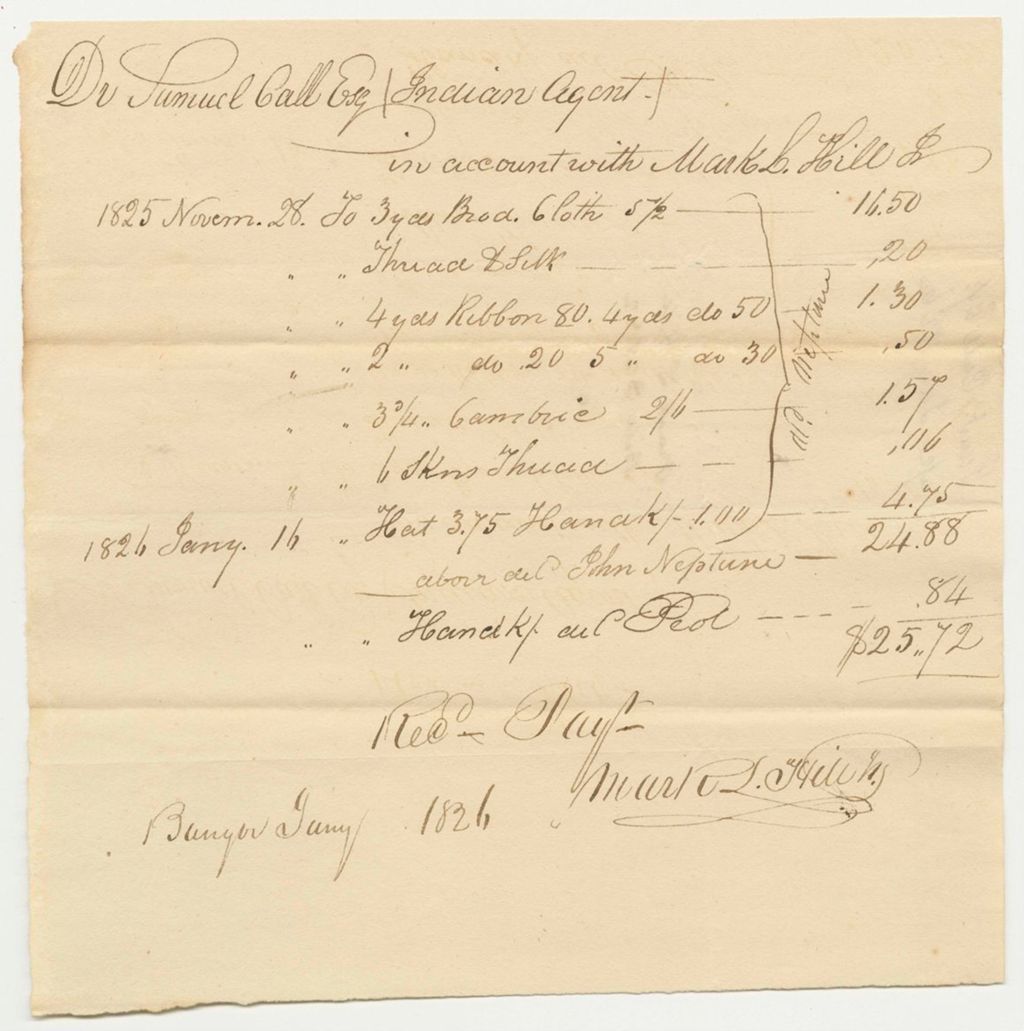 Dr Samuel Call Esq (Indian Agent.)
in account with Mark L. Hill Jr
1825 Novem. 28. To 3 yds Brod. Cloth 5 1/2 — 16.50
" " Thread & Silk — ,20
" " 4 yds Ribbon 80. 4 yds do 50 — 1.30
" " 2 " do .20 5 " do 30 ,50
" " 3 3/4 " Cambric 2/6 — 1.57
" " 6 Skns Thread — ,06
1826 Jany. 16 " Hat 3.75 Handkf 1.00 — 4.75
24.88
Neptune
above del John Neptune —
" " Handkf del Peol — .84
$25.,72
Recd Payt
Mark L. Hill Jr
Bangor Jany 1826